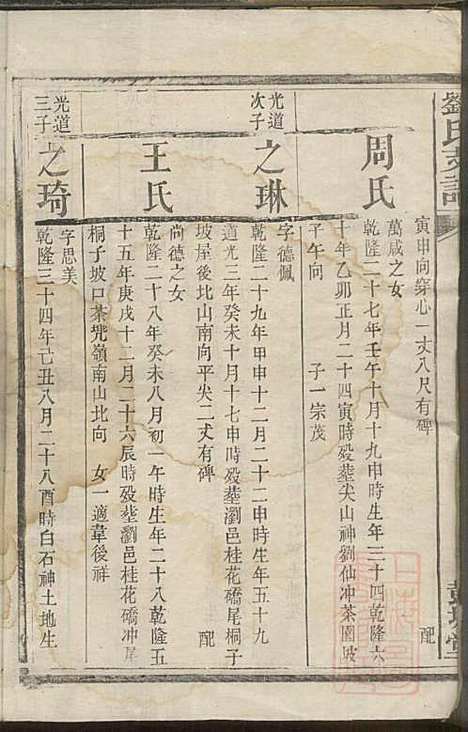 劉氏支譜
寅申向穿心一丈八尺有碑
配
周氏
萬咸之女
乾隆二十七年壬午十月十九申時生年三十四乾隆六
十年乙卯正月二十四寅時殁塟尖山神劉仙冲茶園坡
子午向 子一宗茂
光道次子
之琳
字德佩
乾隆二十九年甲申十二月二十二申時生年五十九
道光三年癸未十月十七申時殁塟瀏邑桂花礄尾桐子
坡屋後北山南向平尖二丈有碑 配
王氏
尚德之女
乾隆二十八年癸未八月初一午時生年二十八乾隆五
十五年庚戌十二月二十六辰時殁塟瀏邑桂花礄冲尾
桐子坡口茶兜嶺南山北向 女一適韋後祥
光道三子
之琦
字思美
乾隆三十四年己丑八月二十八酉時白石神土地生